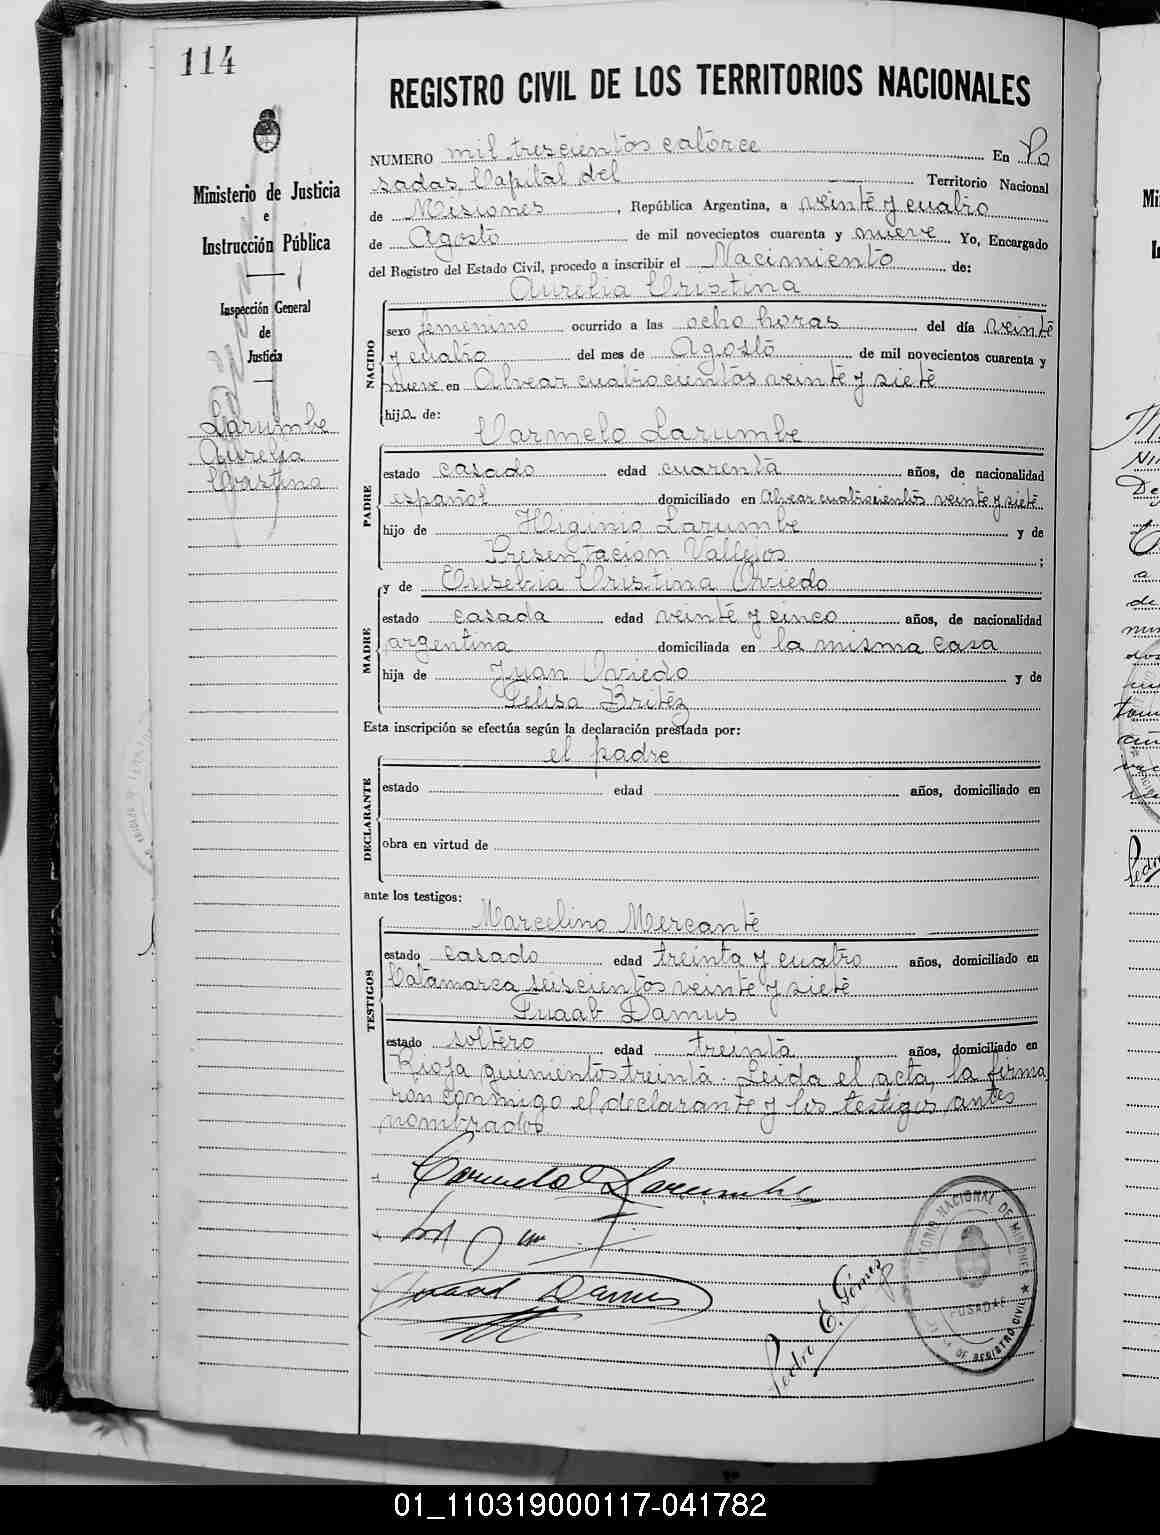 114
REGISTRO CIVIL DE LOS TERRITORIOS NACIONALES
Ministerio de Justicia
e
Instrucción Pública
Inspección General
de
Justicia
Larumbe
Aurelia
Cristina
NUMERO mil trescientos catorce En Po
sadas, Capital del Territorio Nacional
de Misiones, República Argentina, a veinte y cuatro
de Agosto de mil novecientos cuarenta y nueve Yo, Encargado
del Registro del Estado Civil, procedo a inscribir el Nacimiento de:
Aurelia Cristina
NACIDO
sexo femenino ocurrido a las ocho horas del día veinte
y cuatro del mes de Agosto de mil novecientos cuarenta y
nueve en Alvear cuatrocientos veinte y siete
hija de:
Carmelo Larumbe
PADRE
estado casado edad cuarenta años, de nacionalidad
español domiciliado en Alvear cuatrocientos veinte y siete
hijo de Higinio Larumbe y de
Presentación Vallejos;
y de Eusebia Cristina Oviedo
MADRE
estado casada edad veinte y cinco años, de nacionalidad
argentina domiciliada en la misma casa
hija de Juan Oviedo y de
Felisa Britez
Esta inscripción se efectúa según la declaración prestada por:
el padre
DECLARANTE
estado edad años, domiciliado en
obra en virtud de
ante los testigos:
Marcelino Mercante
TESTIGOS
estado casado edad treinta y cuatro años, domiciliado en
Catamarca seiscientos veinte y siete
Fuaab Damus
estado soltero edad treinta años, domiciliado en
Rioja quinientos treinta. Leída el acta, la firma
ron conmigo el declarante y los testigos antes
nombrados
Carmelo Larumbe
Damus
Pedro E. Gómez
NACIONAL DE MISIONES
POSADAS
DE REGISTRO CIVIL
01_110319000117-041782